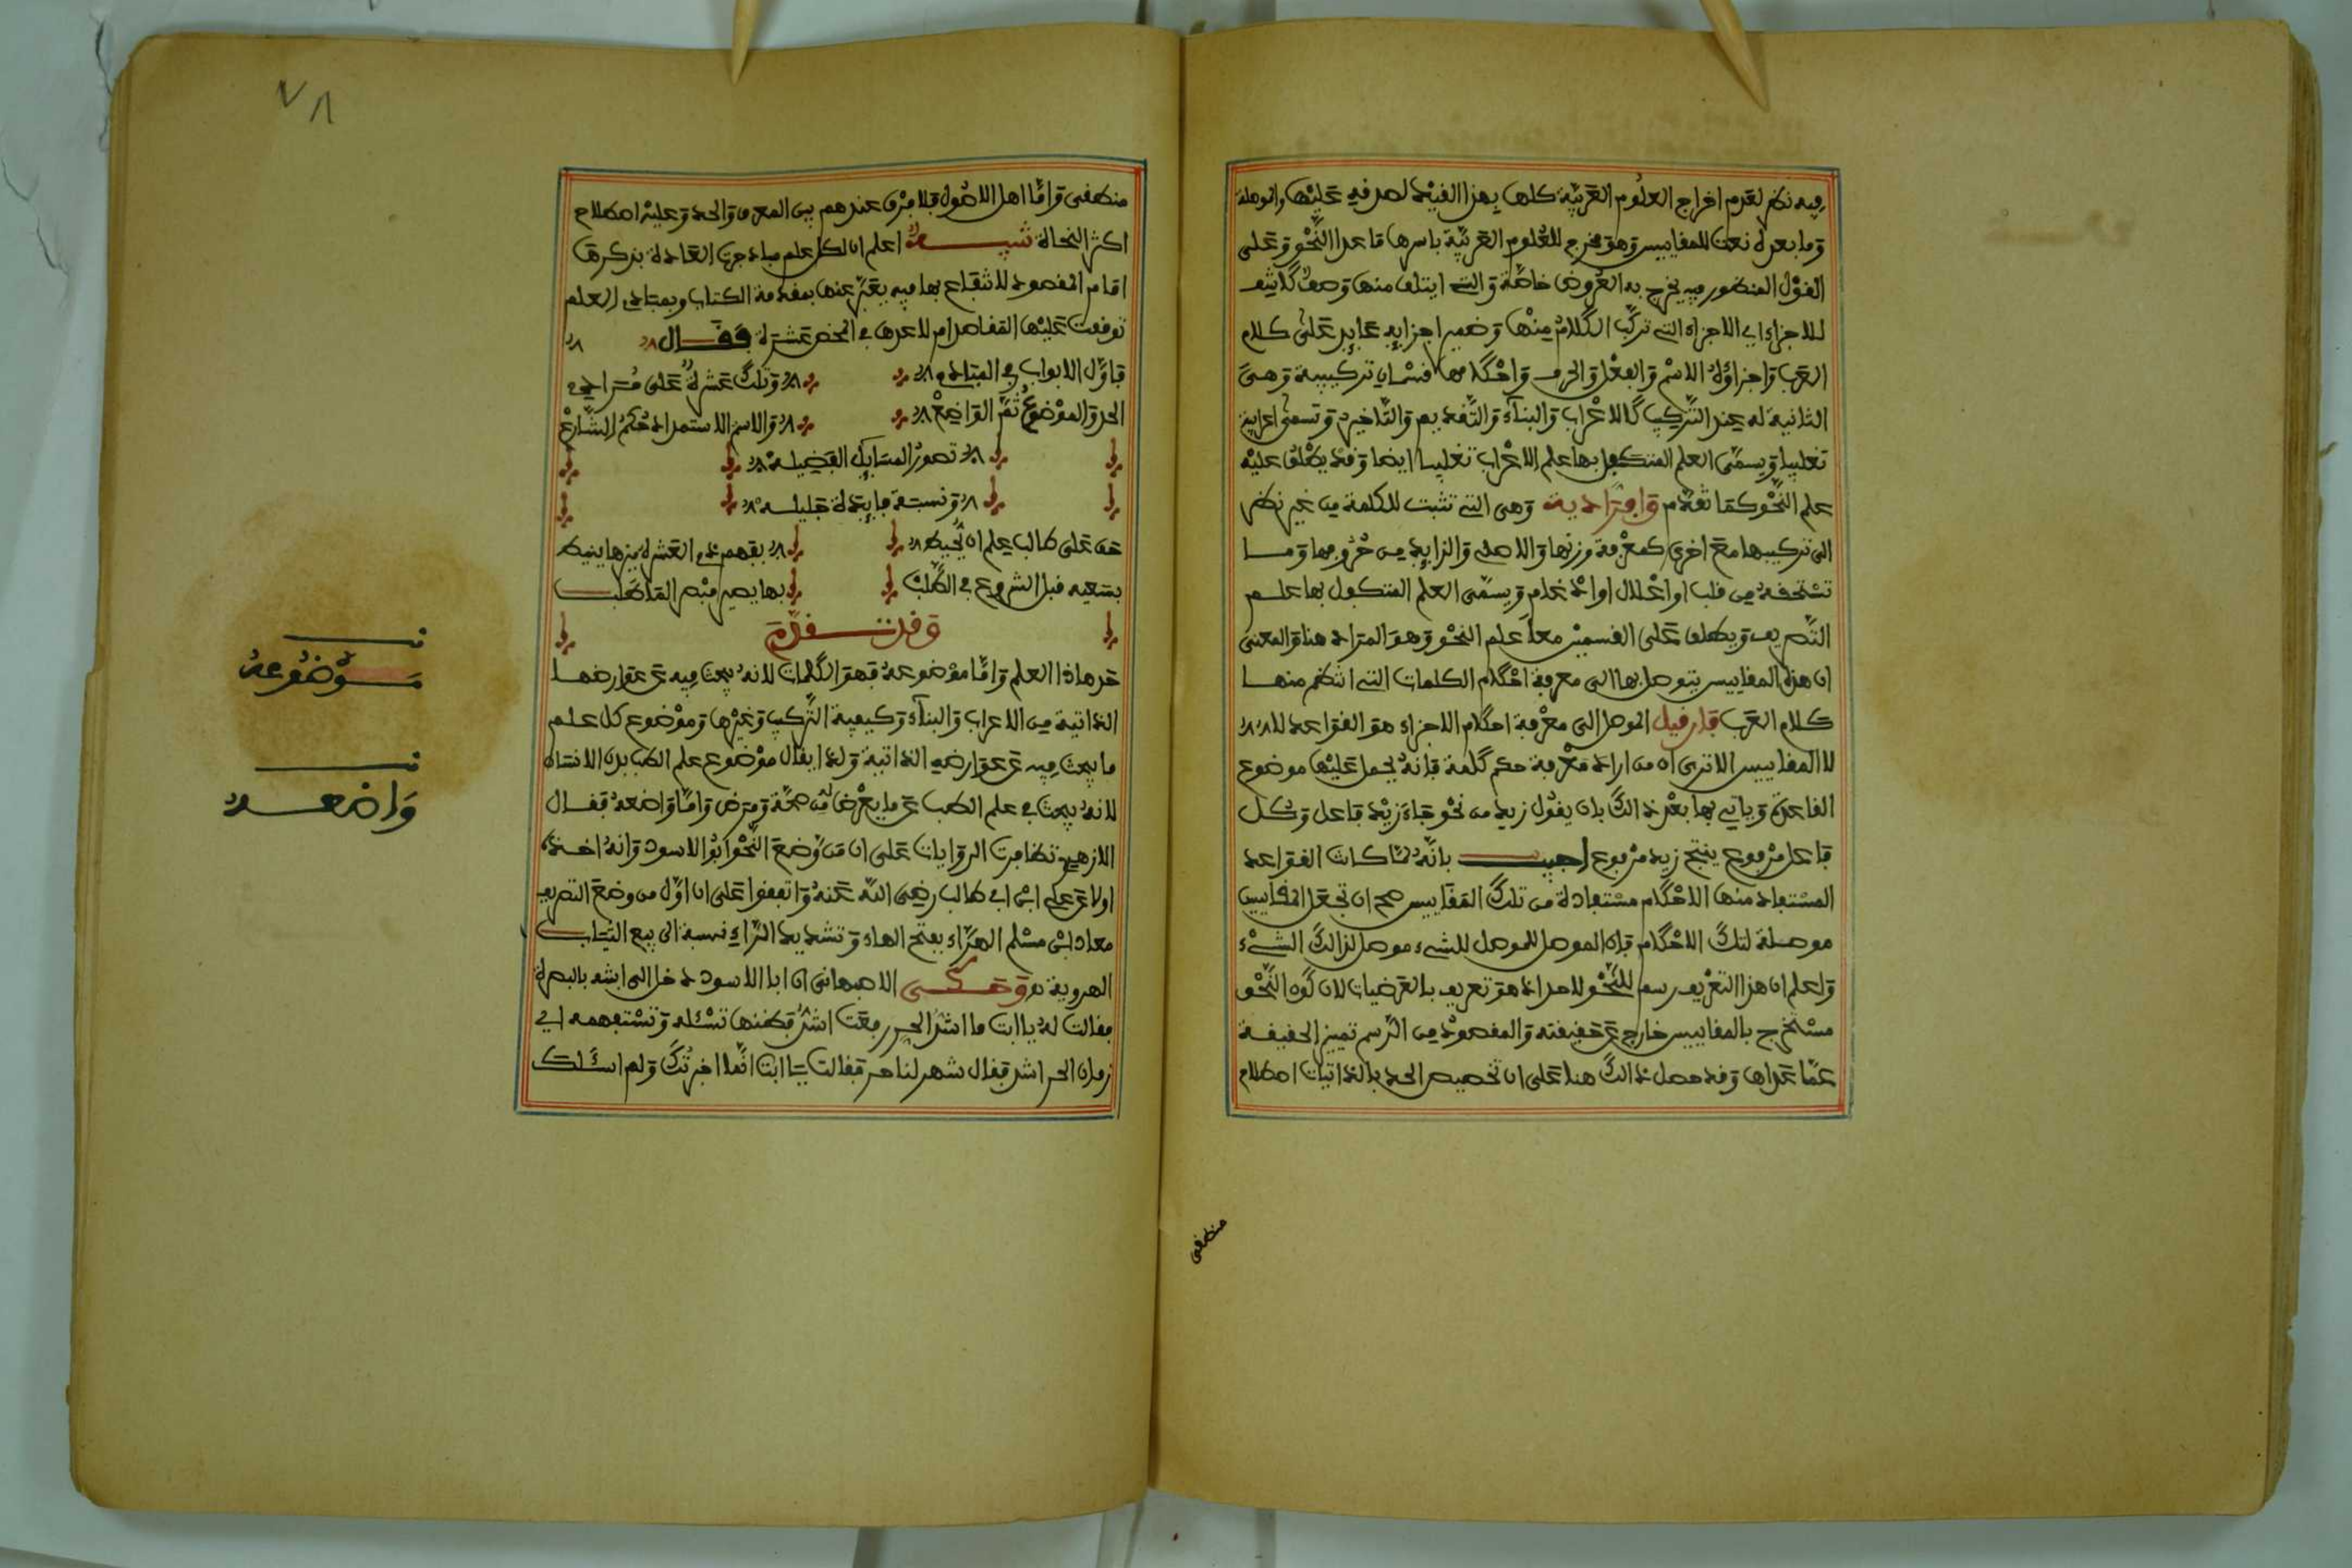 فيه نظر لعدم اخراج العلوم العربية كلها بهذا القيد لصدقه عليها والموصلة
وما بعده نعت للمقاييس وهو مخرج للعلوم العربية باسرها ما عدا النحو وعلى
القول المنظور فيه يخرج به العروض خاصة والتي ايتلف منها وصف كاشف
للاجزاء اي الاجزاء التي تركب الكلام منها وضمير اجزايه عايد على كلام
العرب واجزاؤه الاسم والفعل والحرف واحكامها قسمان تركيبية وهي
الثانية له عند التركيب كالاعراب والبناء والتقديم والتاخير وتسمى اعرابية
تغليبا ويسمى العلم المتكفل بها علم الاعراب تغليبا ايضا وقد يطلق عليه
علم النحو كما تقدم وافرادية وهي التي تثبت للكلمة من غير نظر
الى تركيبها مع اخرى كمعرفة وزنها والاصلي والزايد من حروفها وما
تستحقه من قلب او اعلال او ادغام ويسمى العلم المتكفل بها علم
التصريف ويطلق على القسمين معا علم النحو وهو المراد هنا والمعنى
ان هذه المقاييس يتوصل بها الى معرفة احكام الكلمات التي انتظم منها
كلام العرب فان قيل الموصل الى معرفة احكام الاجزاء هو القواعد
لا المقاييس الا ترى ان من اراد معرفة حكم كلمة فانه يحمل عليها موضوع
القاعدة وياتي بها بعد ذالك بان يقول زيد من نحو جاء زيد فاعل وكل
فاعل مرفوع ينتج زيد مرفوع اجيب بانه لما كانت القواعد
المستفاد منها الاحكام مستفادة من تلك المقاييس صح ان تجعل المقاييس
موصلة لتلك الاحكام فان الموصل للموصل للشيء موصل لذالك الشيء
واعلم ان هذا التعريف رسم للنحو لا حد اذ هو تعريف بالعرضيات لان كون النحو
مستخرج بالمقاييس خارج عن حقيقته والمقصود من الرسم تمييز الحقيقة
عما عداها وقد حصل ذالك هنا على ان تخصيص الحد بالذاتيات اصطلاح
منطقي
٧٨
منطقي واما اهل الاصول فلا فرق عندهم بين المعرف والحد وعليه اصطلاح
اكثر النحاة تنبيه اعلم ان لكل علم مباد جرت العادة بذكرها
امام المقصود للانتفاع بها فيه يعبر عنها بمقدمة الكتاب وبمبادي العلم
توقفت عليها المقاصد ام لا عدها بعضهم عشرة فقال
فاول الابواب في المبادي وتلك عشرة على مراد
الحد والموضوع ثم الواضع والاسم الاستمداد حكم الشارع
تصور المسايل الفضيله
ونسبة فايدة جليله
حق على طالب علم ان يحيط بفهم ذي العشرة ميزها ينيط
بسعيه قبل الشروع في الطلب بها يصير مبصر لما طلب
وقد تقدم
حد هاذا العلم واما موضوعه فهو الكلمات لانه يبحث فيه عن عوارضها
الذاتية من الاعراب والبناء وكيفية التركيب وغيرها وموضوع كل علم
ما يبحث فيه عن عوارضه الذاتية ولذا يقال موضوع علم الطب بدن الانسان
لانه يبحث في علم الطب عن ما يعرض له من صحة ومرض واما واضعه فقال
الازهري تظافرت الروايات على ان من وضع النحو ابو الاسود وانه اخذه
اولا عن علي ابن ابي طالب رضي الله عنه واتفقوا على ان اول من وضع التصريف
معاذ ابن مسلم الهراء بفتح الهاء وتشديد الراء نسبة الى بيع الثياب
الهروية وحكى الاصبهاني ان ابا الاسود دخل الى ابنته بالبصرة
فقالت له يا ابت ما اشد الحر رفعت اشد فظنها تسئله وتستفهمه اي
زمان الحر اشد فقال شهر ناجر فقالت يا ابت انما اخبرتك ولم اسالك
موضوعه
واضعه